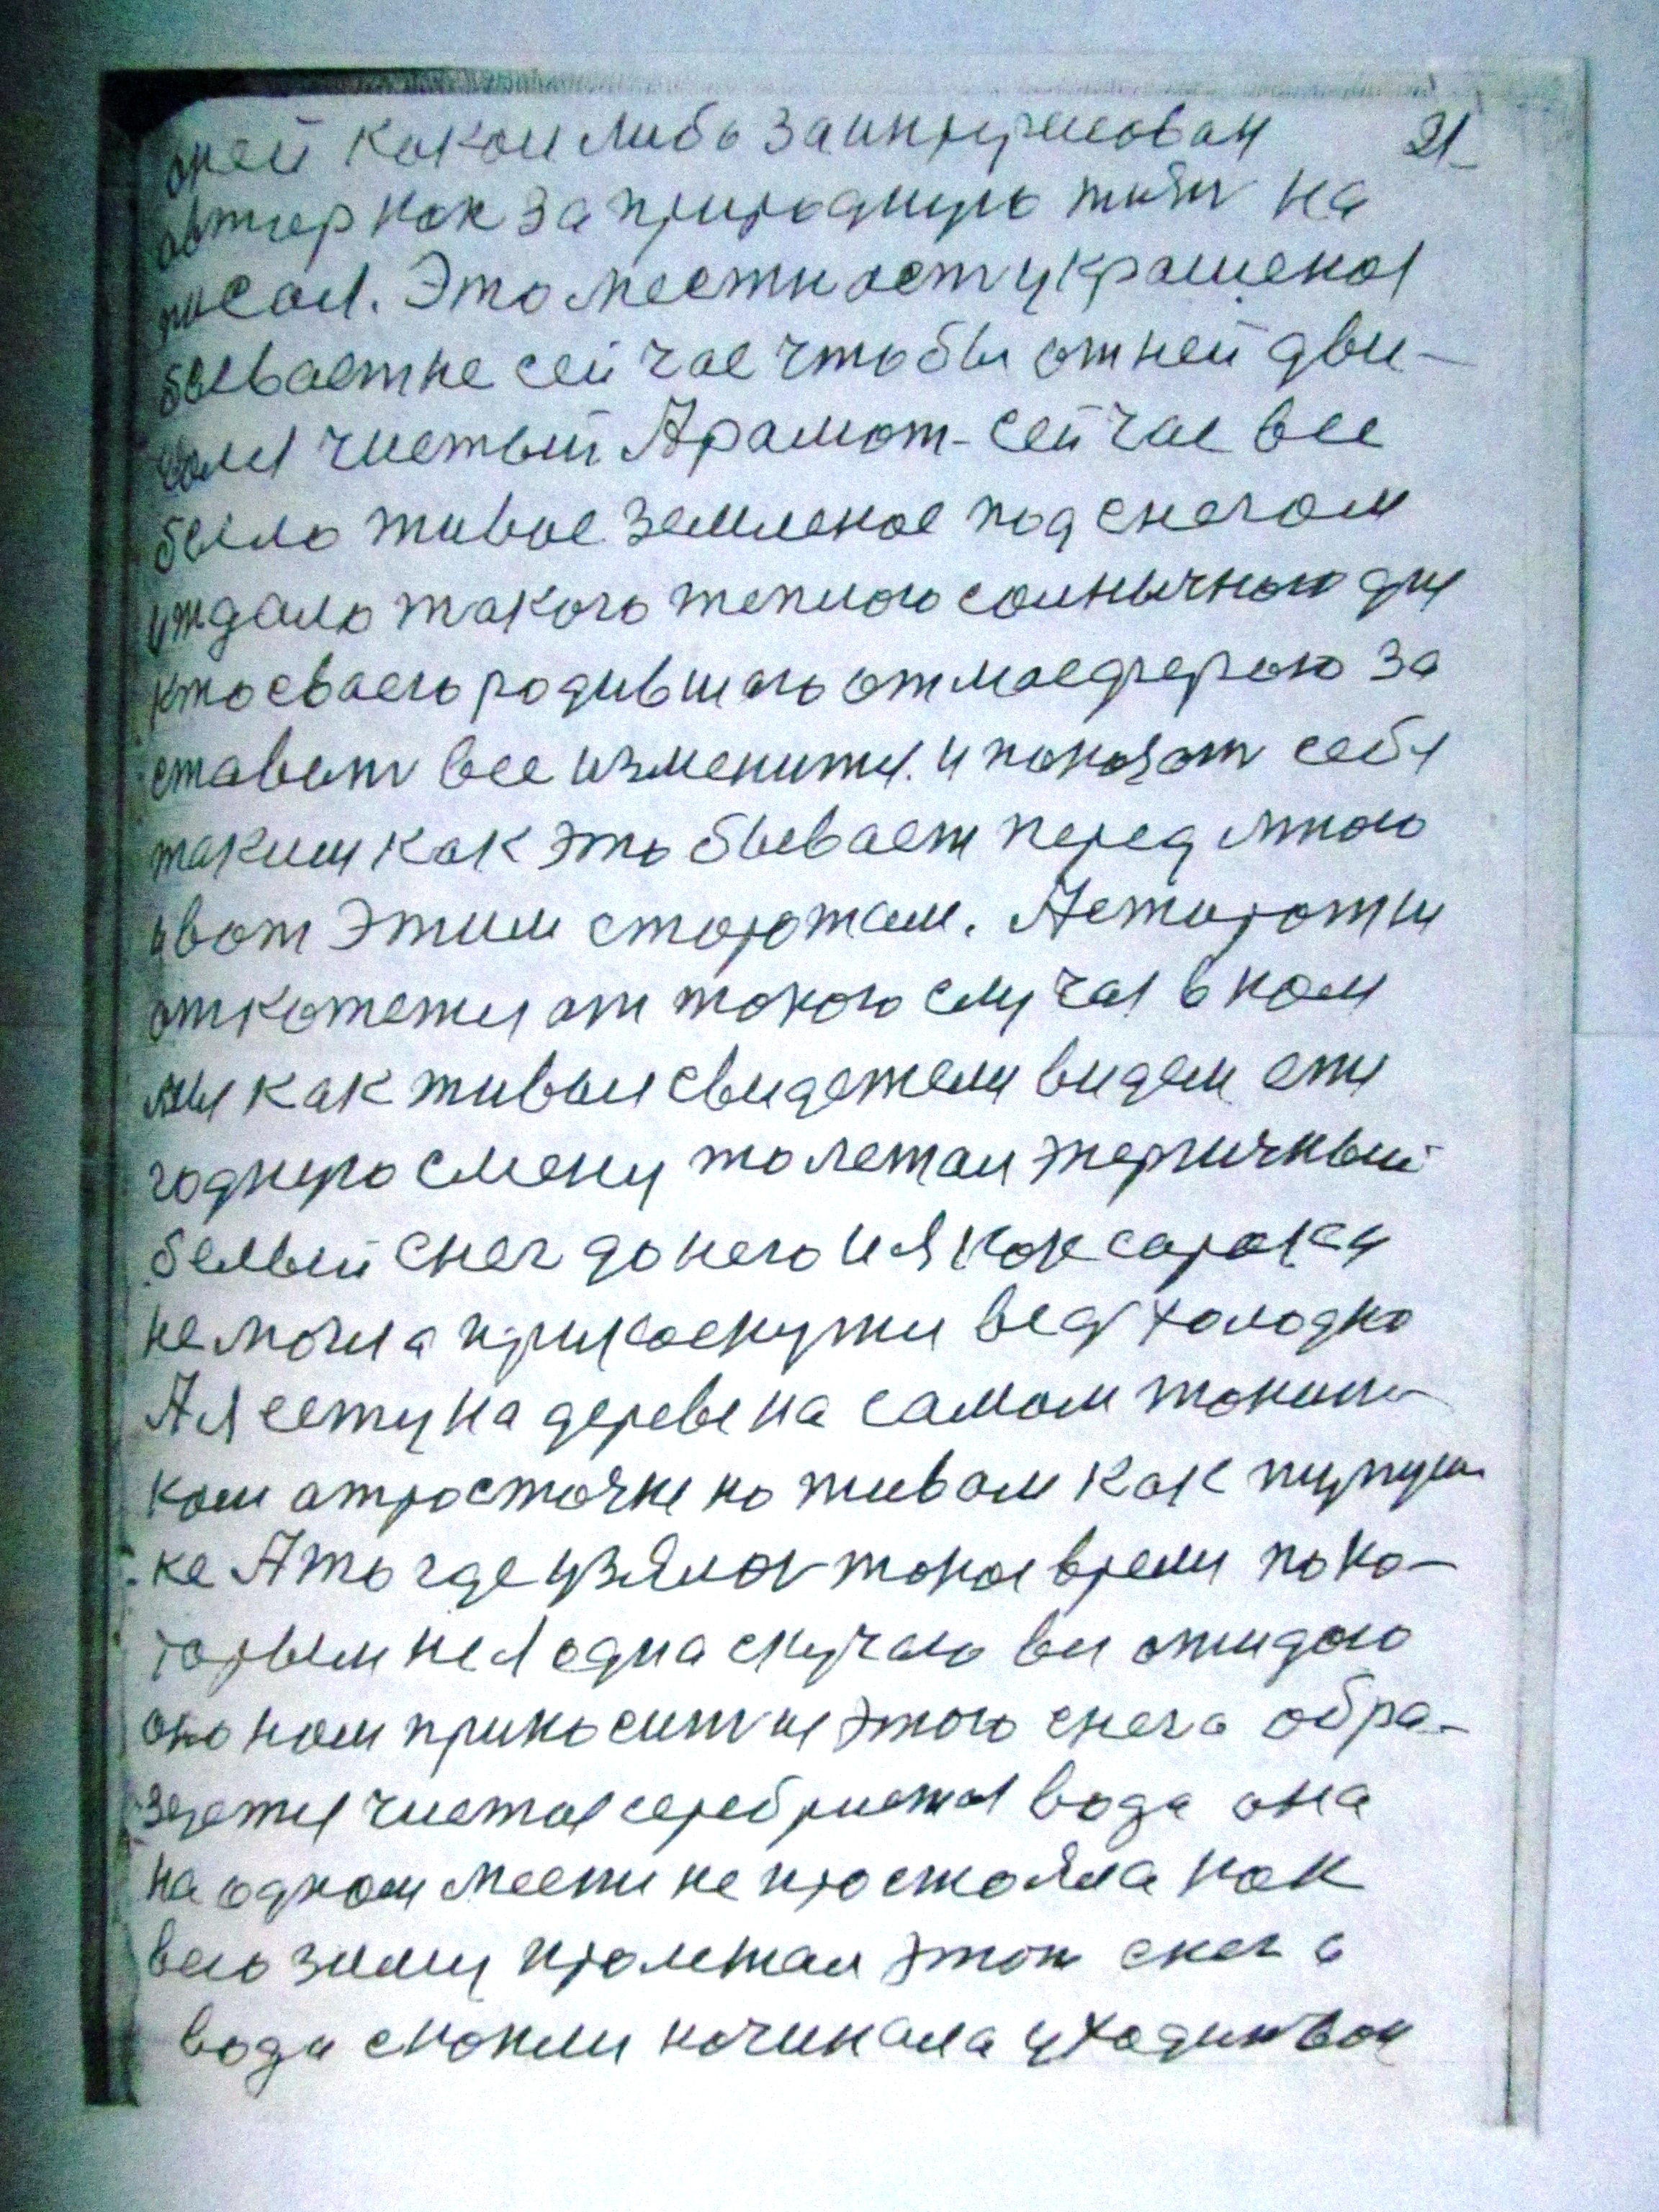 оней каком либо заинтересован 21
автор как за природную жизн на
писал. Это местност украшеная
бывает не сей час чтобы от ней дви-
чистый Арамат - сей час все
было живое земленое под снегом
и ждало такого теплого солнычного дня
кто своею родившаю атмасферою за
ставит все изменится. и показат себя
таким как это бывает перед мною
вот этим сторожам.
от такого случая в ком
мы как живыи свидетели видем
годнюю смену то летал
белый снег до него и я как сарока
не могла прикоснутся вед холодно
А я сежу на дереве на самом тонин-
ком атросточке но живом как пупуш
ке А то где узялас такое времи по ко-
торым не я одна скучаю ви ожидаю
оно нам приносит из этого снега обра-
зуетя чистае серебристая вода она
на одном месте не простояла как
всю зиму пролежал этот снег а
вода с начинала уходит вон